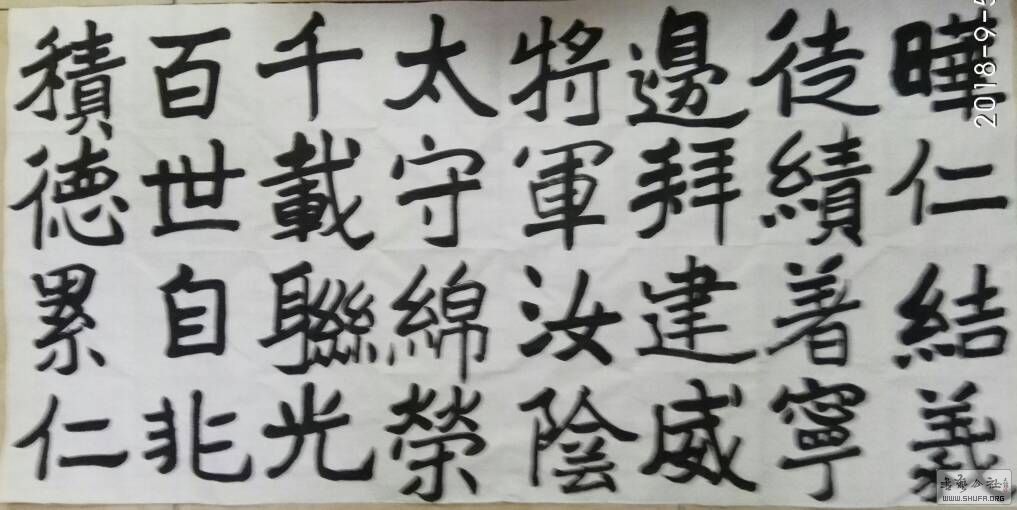 曄仁結義
徒績著寧
邊拜建威
將軍汝陰
太守綿榮
千載聯光
百世自非
積德累仁
2018-9-5
WWW.SHUFA.ORG